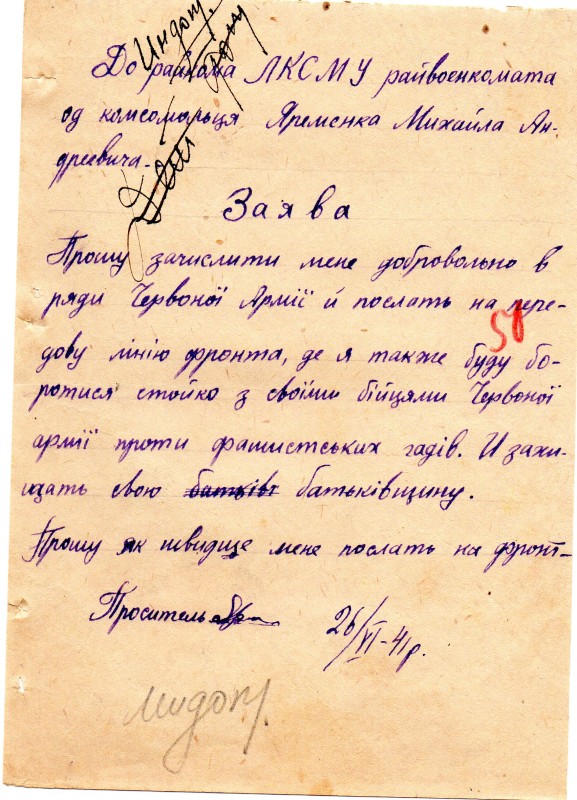 До райкома ЛКСМУ райвоенкомата
од комсомольця Яременка Михайла Ан-
дреевича.
Заява
Прошу зачислити мене добровольно в
ряди Червоної Армії й послать на пере-
58
дову лінію фронта, де я також буду бо-
ротися стойко з своїми бійцями Червоної
армії проти фашистських гадів. И захи-
щать свою батьків батьківщину.
Прошу як швидще мене послать на фронт-
Проситель
26/VI-41р.